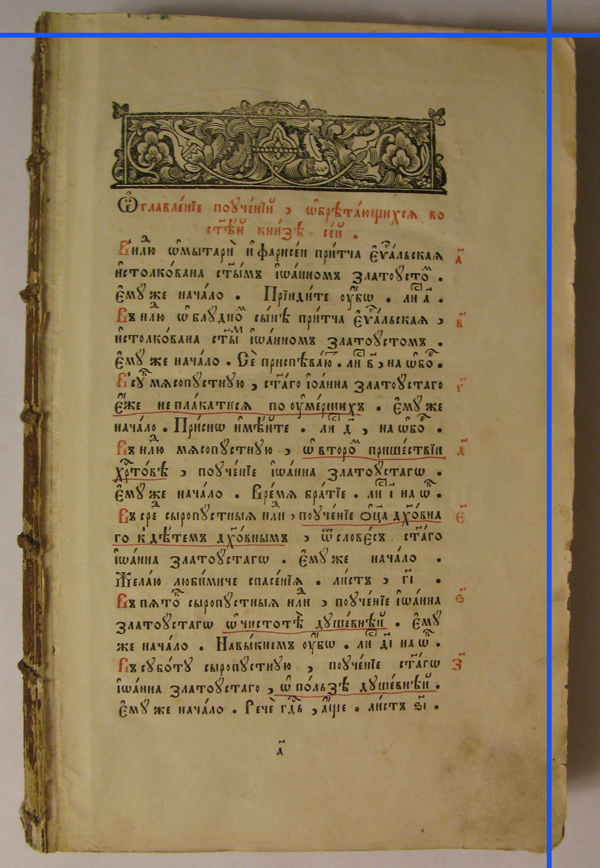 Ѡ҆главле́нїе поꙋче́нїй, ѡ҆брѣта́ющихсѧ во
ст҃ѣ́й кни́зѣ се́й.
В нлⷣю ѡ҆ мытарѝ и҆ фарисе́и при́тча є҆ѵⷢ҇альскаѧ а҃
и҆столко́вана ст҃ы́мъ і҆ѡа́нномъ златоꙋсто́ⷨ.
є҆мꙋ́же нача́ло. Прїиди́те ᲂу҆́бѡ. лиⷭ҇ а҃.
Въ нлⷣю ѡ҆ блꙋдно́ⷨ сы́нѣ при́тча є҆ѵⷢ҇альскаѧ, в҃
и҆столко́вана ст҃ы́ⷨ і҆ѡа́нномъ златоꙋстомъ.
є҆мꙋ́же нача́ло. Сѐ приспѣва́ю. лиⷭ҇ в҃, на ѡ҆бо́ⷬ.
В сꙋⷠ҇ мѧсопꙋстнꙋю, ст҃а́гѡ і҆ѡа́нна златоꙋстаго г҃
є҆́же не пла́катисѧ по ᲂу҆ме́ршихъ. є҆мꙋ́же
нача́ло. При́снѡ и҆мѣ́йте. лиⷭ҇ д҃, на ѡ҆бо́ⷬ.
Въ нлⷣю мѧсопꙋ́стнꙋю, ѡ҆ второ́ⷨ прише́ствїи д҃
хрⷭ҇то́вѣ, поꙋче́нїе і҆ѡа́нна златоꙋ́стагѡ.
є҆мꙋ́же нача́ло. Вре́мѧ бра́тїе. лиⷭ҇ і҃ на ѡ҆ⷠ.
Въ среⷣ сыропꙋстныѧ нлⷣи, поꙋче́нїе ѻ҆ц҃а̀ дх҃о́вна є҃
го к дѣ́темъ дх҃о́внымъ, ѿ слове́съ ст҃а́гѡ
і҆ѡа́нна златоꙋ́стагѡ. є҆мꙋ́же нача́ло.
Жела́ю люби́миче спасе́нїѧ. ли́стъ, г҃і.
Въ пѧто́ⷦ сыропꙋ́стныѧ нлⷣи, поꙋче́нїе і҆ѡа́нна ѕ҃
златоꙋ́стагѡ ѡ҆ чистотѣ̀ дꙋше́внѣй. є҆мꙋ́
же нача́ло. Навы́кнемъ ᲂу҆́бѡ. лиⷭ҇ д҃і на ѡ҆ⷠ.
Въ сꙋббо́тꙋ сыропꙋ́стнꙋю, поꙋче́нїе ст҃а́гѡ з҃
і҆ѡа́нна златоꙋ́стаго, ѡ҆ по́льзѣ дꙋше́внѣй.
є҆мꙋ́же нача́ло. Речѐ гдⷭ҇ь, а҆́ще. ли́стъ ѕ҃і.
а҃